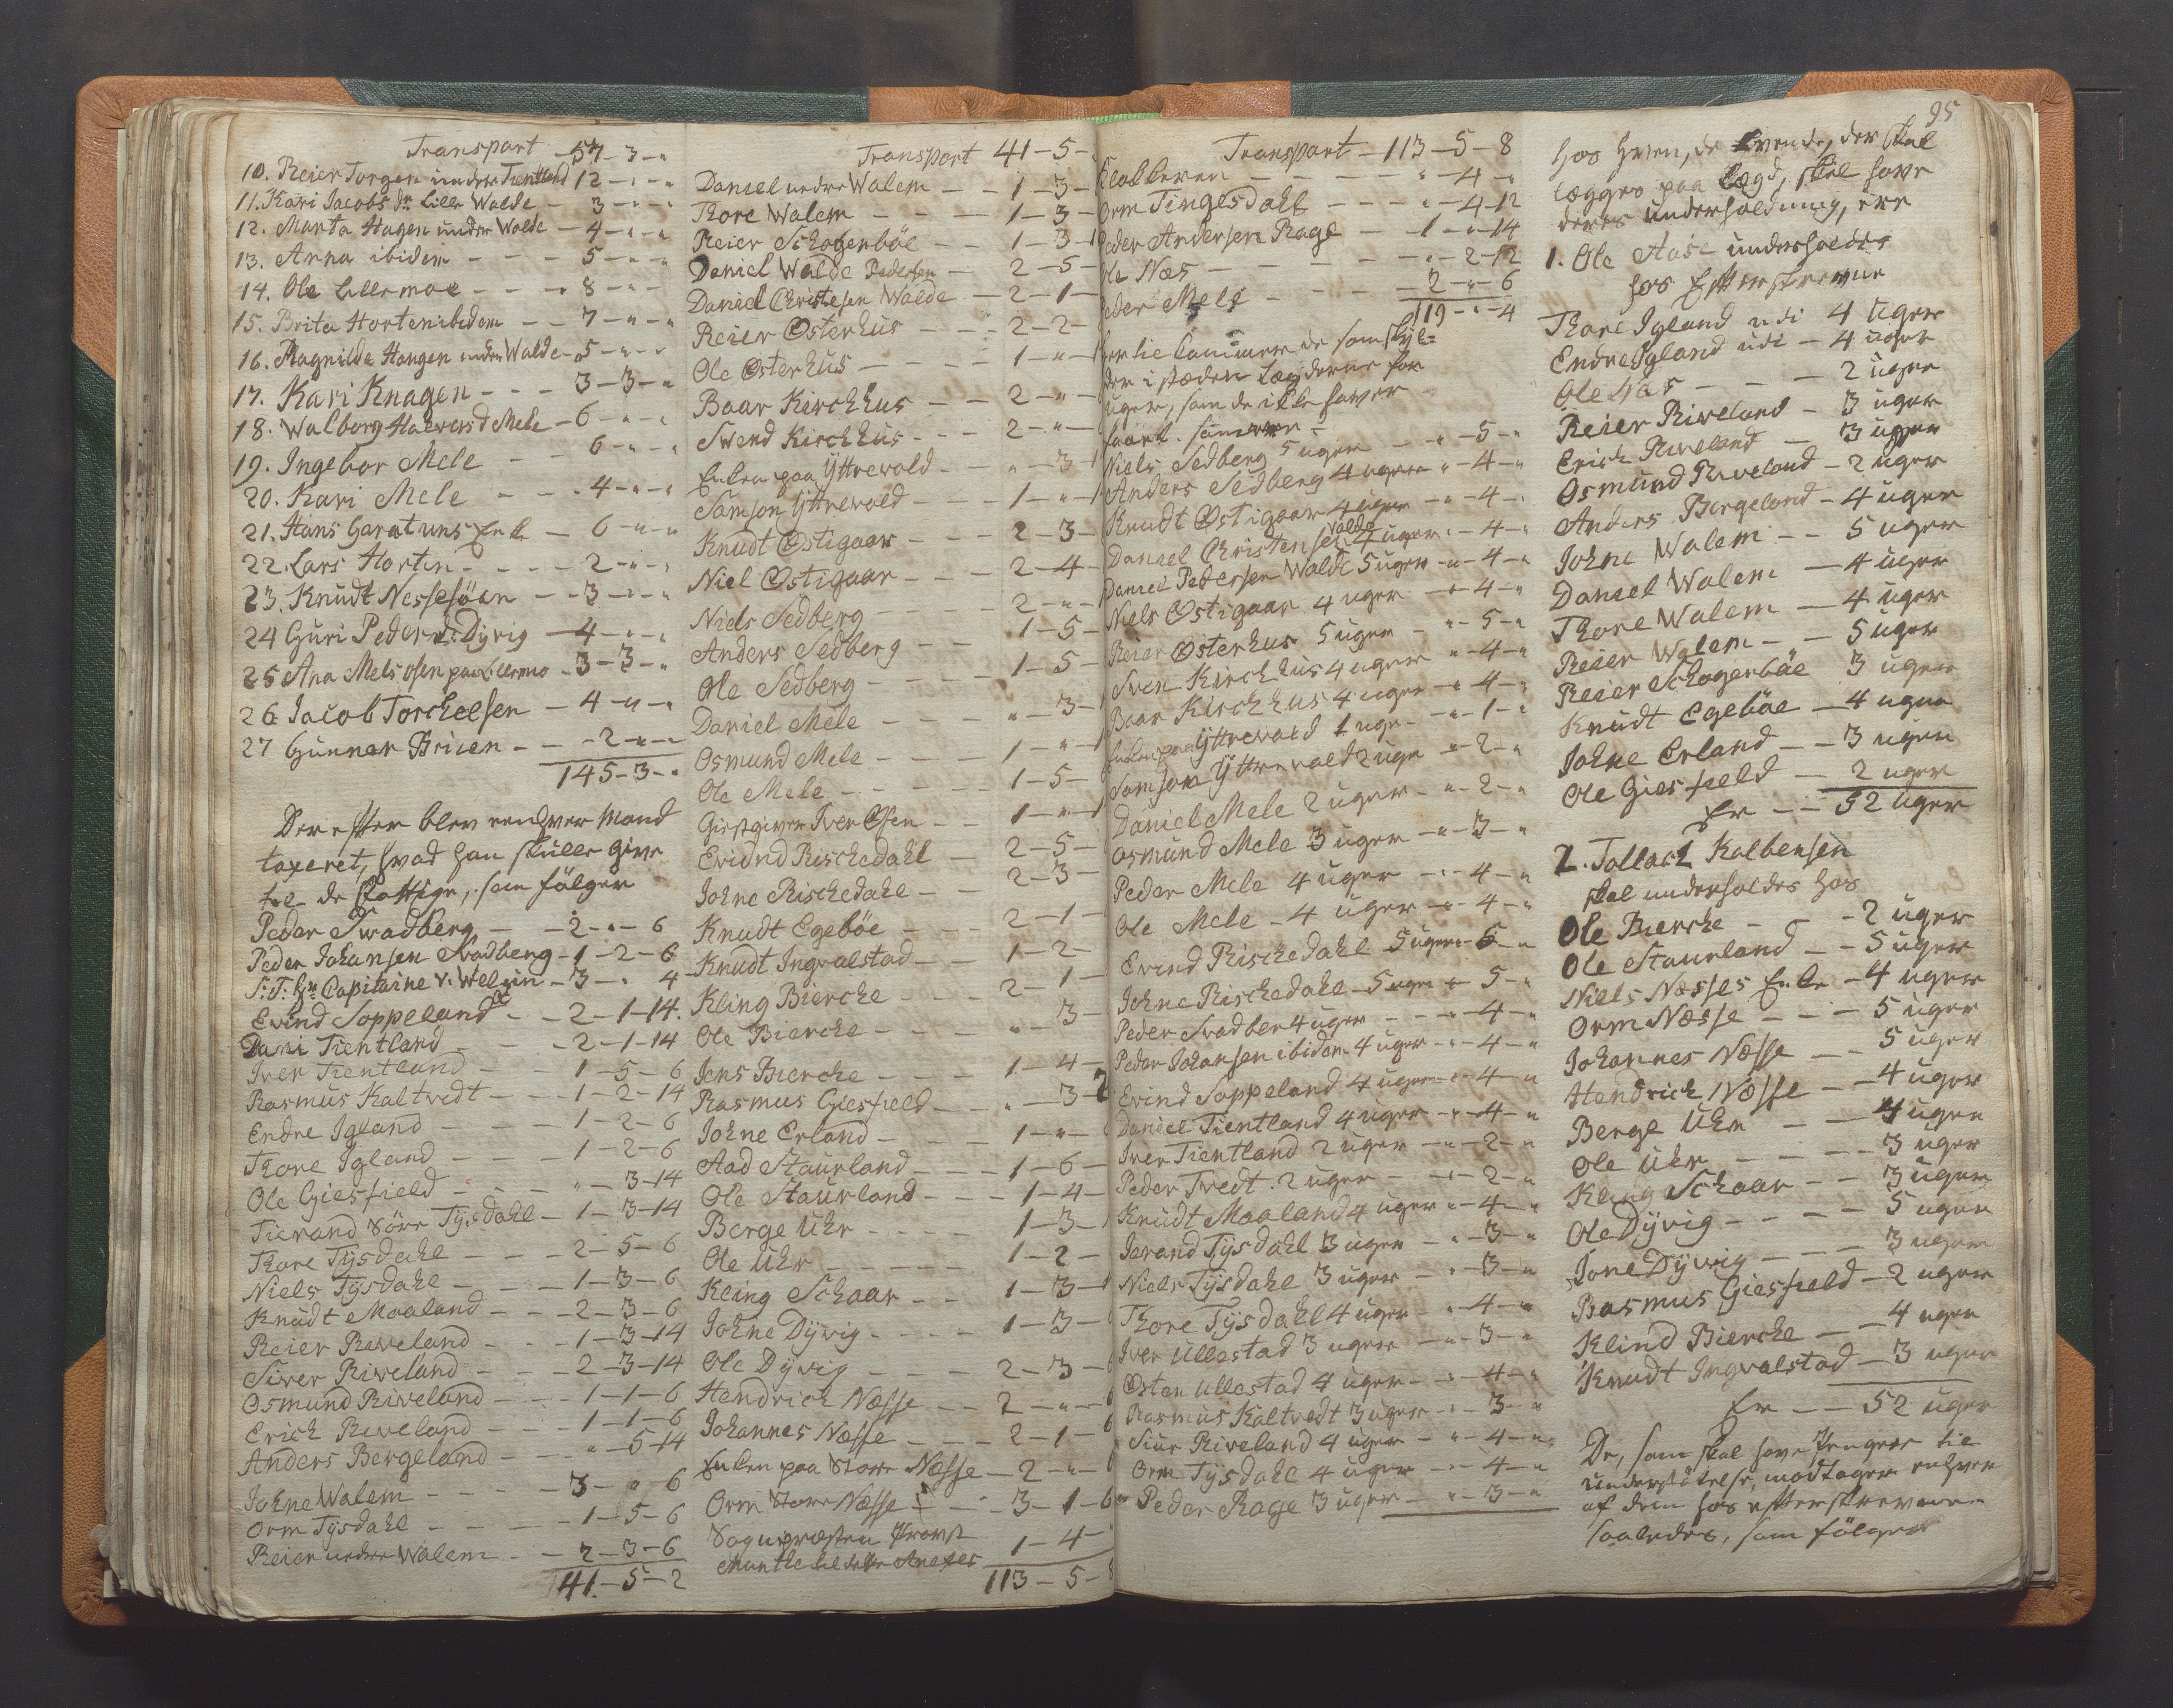 Transport - 57-3-"
10. Reier Torgen under Tientland 12-"-"
11. Kari Jacobs dr Lille Walde - 3-"-"
12. Marta Hagen under Walde - 4-"-"
13. Anna ibidem - - - 5-"-"
14. Ole Lillemoe - - - 8-"-"
15. Brita Horten ibidem - - 7-"-"
16. Magnilda Haugen under Walde - 5-"-"
17. Kari Knagen - - - 3-3-"
18. Walborg Halvers d Mele - 6-"-"
19. Ingebor Mele - - 6-"-"
20. Kari Mele - - - 4-"-"
21. Hans Garatuns Enke - 6-"-"
22. Lars Horten - - - - 2-"-"
23. Knudt Nessesöen - - 3-"-"
24 Guri Peders d. Dÿvig - 4-"-"
25 Ana Mels osen paa Lillemo - 3-3-"
26 Jacob Torchelsen - 4-"-"
27 Gunner Brisen - - - 2-"-"
145-3-"
Derefter blev eenhver Mand
taxeret, hvad han skulle give
til de fattige, som fölger
Peder Swadberg - - 2-"-6
Peder Johansen Svadberg - 1-2-6
S: T: Hr Capitaine v: Welun - 3-"-4
Evind Soppeland - - 2-1-14.
Dani Tientland - - 2-1-14
Iver Tientland - - 1-5-6
Rasmus Kaltvedt - - 1-2-14
Endre Igland - - - 1-2-6
Thore Igland - - - 1-2-6
Ole Giesfield - - - "-3-14
Tierand Söre Tÿsdahl - 1-3-14
Thore Tÿsdahl - - - 2-5-6
Niels Tÿsdahl - - - 1-3-6
Knudt Maaland - - 2-3-6
Reier Reveland - - - 1-3-14
Siver Riveland - - - 2-3-14
Osmund Riveland - - 1-1-6
Erich Riveland - - - 1-1-6
Anders Bergeland - - - "-5-14
Johne Walem - - - 3-"-6
Orm Tÿsdahl - - - 1-5-6
Reier nedre Walem - - 2-3-6
41-5-2
Transport 41-5-
Daniel nedre Walem - - 1-3-
Thore Walem - - - 1-3-
Reier Schogenböe - - 1-3-
Daniel Walde Pedersen - 2-5-
Daniel Christesen Walde - 2-1-
Reier Østerhus - - - 2-2-
Ole Østerhus - - - - 1-"-
Baar Kirchhus - - 2-"-
Svend Kirchhus - - - 2-"-
Enken paa Ÿttrevold - - - "-3-
Samson Ÿttrevold - - - 1-"-
Knudt Østigaar - - - 2-3-
Niel Østigaar - - - 2-4-
Niels Sedberg - - - 2-"-
Anders Sedberg - - 1-5-
Ole Sedberg - - - - 1-5-
Daniel Mele - - - "-3-
Osmund Mele - - - 1-"-
Ole Mele - - - - 1-5-
Giestgiver Iver Olsen - - 1-"-
Evidnd Rischedahl - 2-5-
Johne Rischedahl - - 2-3-
Knudt Egeböe - - - 2-1-
Knudt Ingvalstad - - 1-2-
Kling Bierche - - - 2-1-
Ole Bierche - - - - "-3-
Jens Bierche - - - - 1-4-
Rasmus Giesfield - - - "-3-
Johne Erland - - - 1-"-
Aad Staurland - - - 1-6-
Ole Staurland - - - 1-4-
Berge Uhr - - - - 1-3-
Ole Uhr - - - - - 1-2-
Kling Schaar - - - 1-3-
Johne Dÿvig - - - - 1-3-
Ole Dÿvig - - - - 2-3-
Hendrich Næsse - - 2-"-
Johannes Næsse - - - 2-1-6
Enken paa Store Næsse - 2-"-
Orm Store Næsse - - 3-1-6
Sognepræsten Provst
Munthe til dette Anexes 1-4-
113-5-8
Transport - 113-5-8
Klokkeren - - - - - "-4-"
Orm Tingesdahl - - - "-4-12
Peder Andersen Rage - - 1-"-14
Ole Næs - - - - - "-2-12
Peder Mele - - - - 2-"-6
119-"-4
hertil kommer de som skÿl-
der i stæden Lægderne for
uger, som de ikke haver
faaet. 
Niels Sedberg 5 uger - - "-5-"
Anders Sedberg 4 uger "-4-"
Knudt Østigaar 4 uger "-4-"
Daniel Christensen Walde 4 uger "-4-"
Daniel Pedersen Walde 5 uger "-4-"
Niels Østigaar 4 uger - "-4-"
Reier Østerhus 5 uger - "-5-"
Sven Kirchhus 4 uger "-4-"
Baar Kirchhus 4 uger - "-4-"
Enken paa Ÿttrevold 1 uge - "-1-"
Samson Ÿttrevold 2 uge "-2-"
Daniel Mele 2 uger - "-2-"
Osmund Mele 3 uger - "-3-"
Peder Mele 4 uger - "-4-"
Ole Mele - 4 uger - "-4-"
Evend Rischedahl 5 uger - 5-"
Johne Rischedahl 5 uger "-5-"
Peder Svadber 4 uger - - "-4-"
Peder Johansen ibidem 4 uger - "-4-"
Evind Soppeland 4 uger - "-4-"
Daniel Tientland 4 uger - "-4-"
Iver Tientland 2 uger - "-2-"
Peder Tvedt. 2 uger - "-2-"
Knudt Maaland 4 uger "-4-"
Jerand Tÿsdahl 3 uger - "-3-"
Niels Tÿsdahl 3 uger - "-3-"
Thore Tÿsdahl 4 uger - "-4-"
Iver Ullestad 3 uger - "-3-"
Østen Ullestad 4 uger - "-4-"
Rasmus Kaltvedt 3 uger - "-3-"
Siur Riveland 4 uger - "-4-"
Orm Tÿsdahl 4 uger - "-4-"
Peder Rage 3 uger - "-3-"
95
hos hvem, de Svende, der skal
lægges paa Lægd, skal have
deres underholdning, ere
1. Ole Hase underholdes
hos Efterskrevne
Thore Igland udi 4 uger
Endre Igland udi - 4 uger
Ole Næs - - - 2 uger
Reier Riveland - 3 uger
Erich Riveland - 3 uger
Osmund Riveland - 2 uger
Anders Bergeland - 4 uger
Johne Walem - - 5 uger
Daniel Walem - 4 uger
Thore Walem - 4 uger
Reier Walem - - 5 uger
Reier Schogerböe 3 uger
Knudt Egeböe - 4 uger
Johne Erland - - 3 uger
Ole Giesfield - 2 uger
Er - - 52 uger
2. Tollach Kalbensen
skal underholdes hos
Ole Bierche - - - 2 uger
Ole Staurland - - 5 uger
Niels Næsses Enke - 4 uger
Orm Næsse - - - 5 uger
Johannes Næsse - - 5 uger
Hendrich Næsse - - 4 uger
Berge Uhr - - 4 uger
Ole Uhr - - - - 3 uger
Kling Schaar - - 3 uger
Ole Dÿvig - - - - 5 uger
Jone Dÿvig - - - 3 uger
Rasmus Giesfield - 2 uger
Klind Bierche - - 4 uger
Knudt Ingvalstad - 3 uger
Er - - 52 uger
De, som skal have Penger til
understøttelse, modtager enhver
af dem hos efterskrevne
saaledes, som fölger